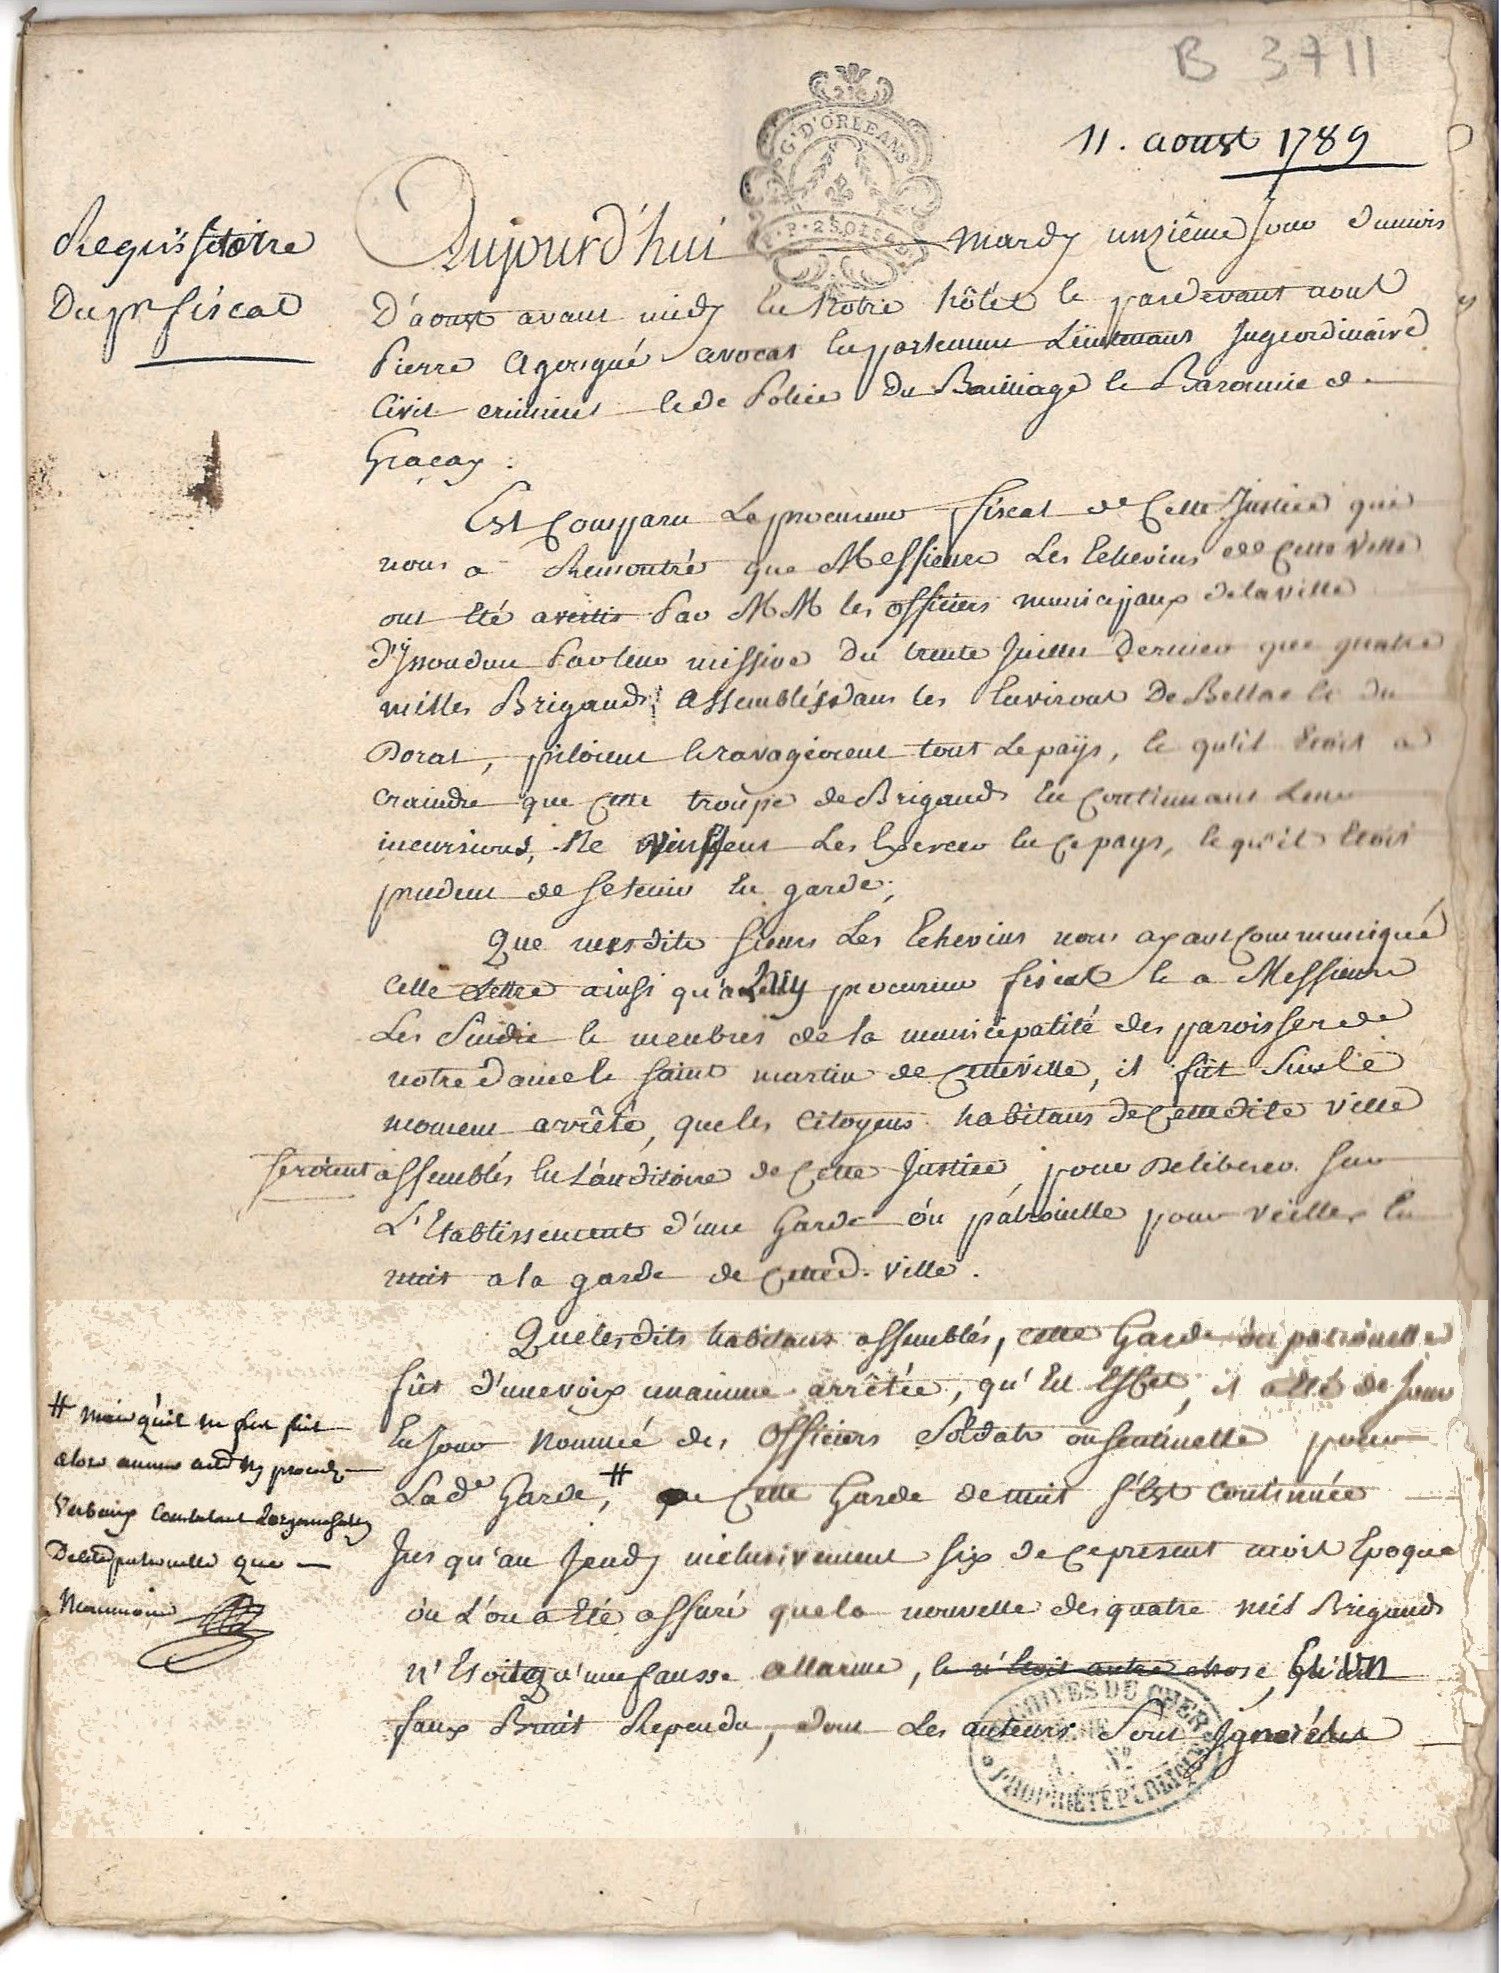 B 3711
G. D'ORLEANS
11. aoust 1789
Requisitoire
Du pr fiscal
Aujourd'hui mardy unzième Jour du mois
D'aoust avant midy En Notre hôtel et pardevant nous
Pierre Agorgué avocat En parlement Lieutenant Juge ordinaire
Civil criminel et de Police Du Bailliage et Baronnie de
Graçay.
Est Comparu Le procureur fiscal de Cette Justice qui
nous a Remontré que Messieurs Les Echevins de Cette Ville
ont Eté avertis Par MM les officiers municipaux de la ville
d'Yssoudun Par leur missive Du trente Juillet Dernier que quatre
milles Brigands Assemblés dans les Environs De Bellac et du
Dorat, piloient et ravageoient tout Le pays, et qu'il Etoit a
craindre que Cette troupe de Brigands En Continuant Leurs
incursions, Ne Vinssent Les Exercer En Ce pays, et qu'il Etoit
prudent de se tenir En garde;
Que mesdits sieurs Les Echevins nous ayant Communiqué
Cette Lettre ainsi qu'a luy procureur fiscal et a Messieurs
Les Sindic et menbres de la municipalité des paroisses de
notre Dame et saint martin de Cette Ville, il fût Sur le
moment arrêté, que les Citoyens habitans de Cette dite ville
seroient assemblés En L'auditoire de Cette Justice, pour Deliberer sur
L'Etablissement d'une Garde ou pátrouille pour veiller En
nuit a la garde de Cetted. Ville.
Que lesdits habitans assemblés, cette Garde ou patrouille
fût d'une voix unanime arrêtée, qu'En Effet, il a Eté de Jour
En Jour Nommé des Officiers Soldats ou sentinelle pour
Lade Garde, # que Cette Garde de nuit s'Est continuée
Jusqu'au Jeudy inclusivement six de Ce present mois Epoque
ou L'on a Eté assuré que la nouvelle des quatre mil Brigands
n'Etoit qu'une fausse allarme, et n'Etoit autre chose, Et un
faux Bruit Rependu, dont Les auteurs Sont Ignorés
# mais qu'il ne fut fait
alors aucun acte ny procès
Verbaux Constatant L'organisation
De ladite patrouille que
Neanmoins
ARCHIVES DU CHER
PROPRIÉTÉ PUBLIQUE